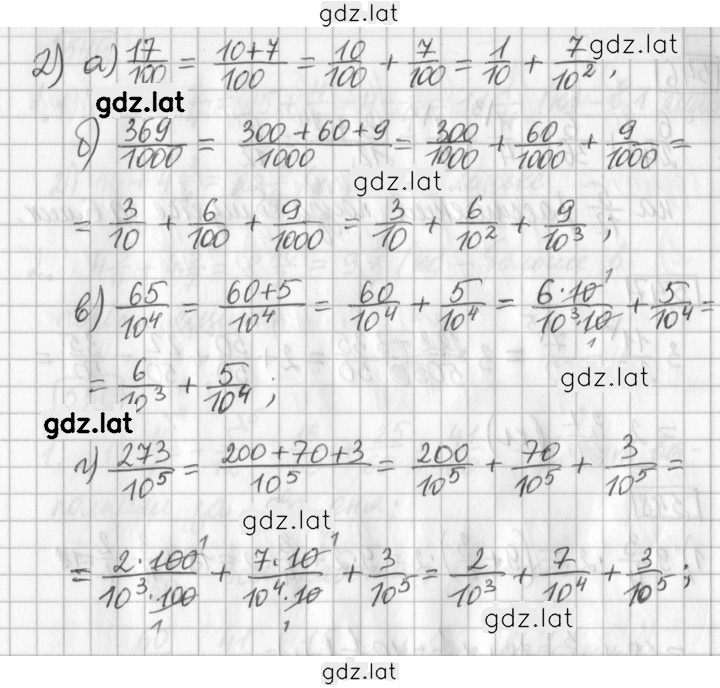 gdz.lat
2) а) 17/100 = (10+7)/100 = 10/100 + 7/100 = 1/10 + 7/10² ;
gdz.lat
gdz.lat
б) 369/1000 = (300+60+9)/1000 = 300/1000 + 60/1000 + 9/1000 =
gdz.lat
= 3/10 + 6/100 + 9/1000 = 3/10 + 6/10² + 9/10³ ;
в) 65/10⁴ = (60+5)/10⁴ = 60/10⁴ + 5/10⁴ = (6·10 1)/(10³·10 1) + 5/10⁴ =
= 6/10³ + 5/10⁴ ;
gdz.lat
gdz.lat
г) 273/10⁵ = (200+70+3)/10⁵ = 200/10⁵ + 70/10⁵ + 3/10⁵ =
gdz.lat
= (2·100 1)/(10³·100 1) + (7·10 1)/(10⁴·10 1) + 3/10⁵ = 2/10³ + 7/10⁴ + 3/10⁵ ;
gdz.lat
gdz.lat